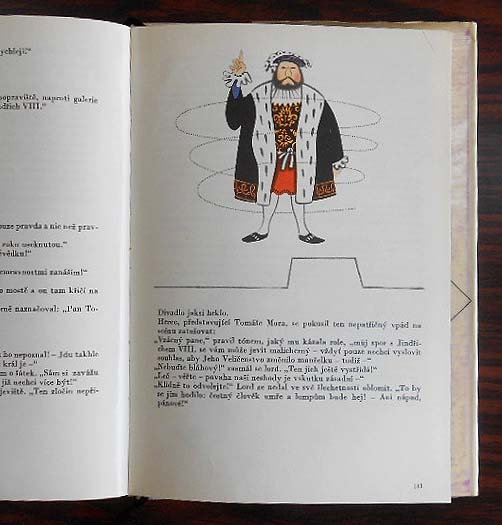 ychleji!"
popraviště, naproti galerie
dřich VIII."
ouze pravda a nic než prav-
roku useknutou."
vědku!"
emravnostmi zanáším!"
mostě a on tam křičí na
rně naznačoval: „Pan To-
ho nepoznal! – Jdu takhle
král je –"
m o šátek. „Sám si zavážu
již nechci více být!"
jeviště. „Ten zločin nepři-
Divadlo jaksi heklo.
Herec, představující Tomáše Mora, se pokusil ten nepatřičný vpád na
scénu zatušovat:
„Vzácný pane," pravil tónem, jaký mu kázala role, „můj spor s Jindři-
chem VIII. se vám může jevit malicherný – vždyť pouze nechci vyslovit
souhlas, aby Jeho Veličenstvo zaměnilo manželku – totiž –"
„Nebuďte bláhový!" zasmál se lord. „Ten jich ještě vystřídá!"
„Leč – věřte – povaha naší neshody je vskutku zásadní –"
„Klidně to odvolejte!" Lord se nedal ve své šlechetnosti oblomit. „To by
se jim hodilo: čestný člověk umře a lumpům bude hej! – Ani nápad,
pánové!"